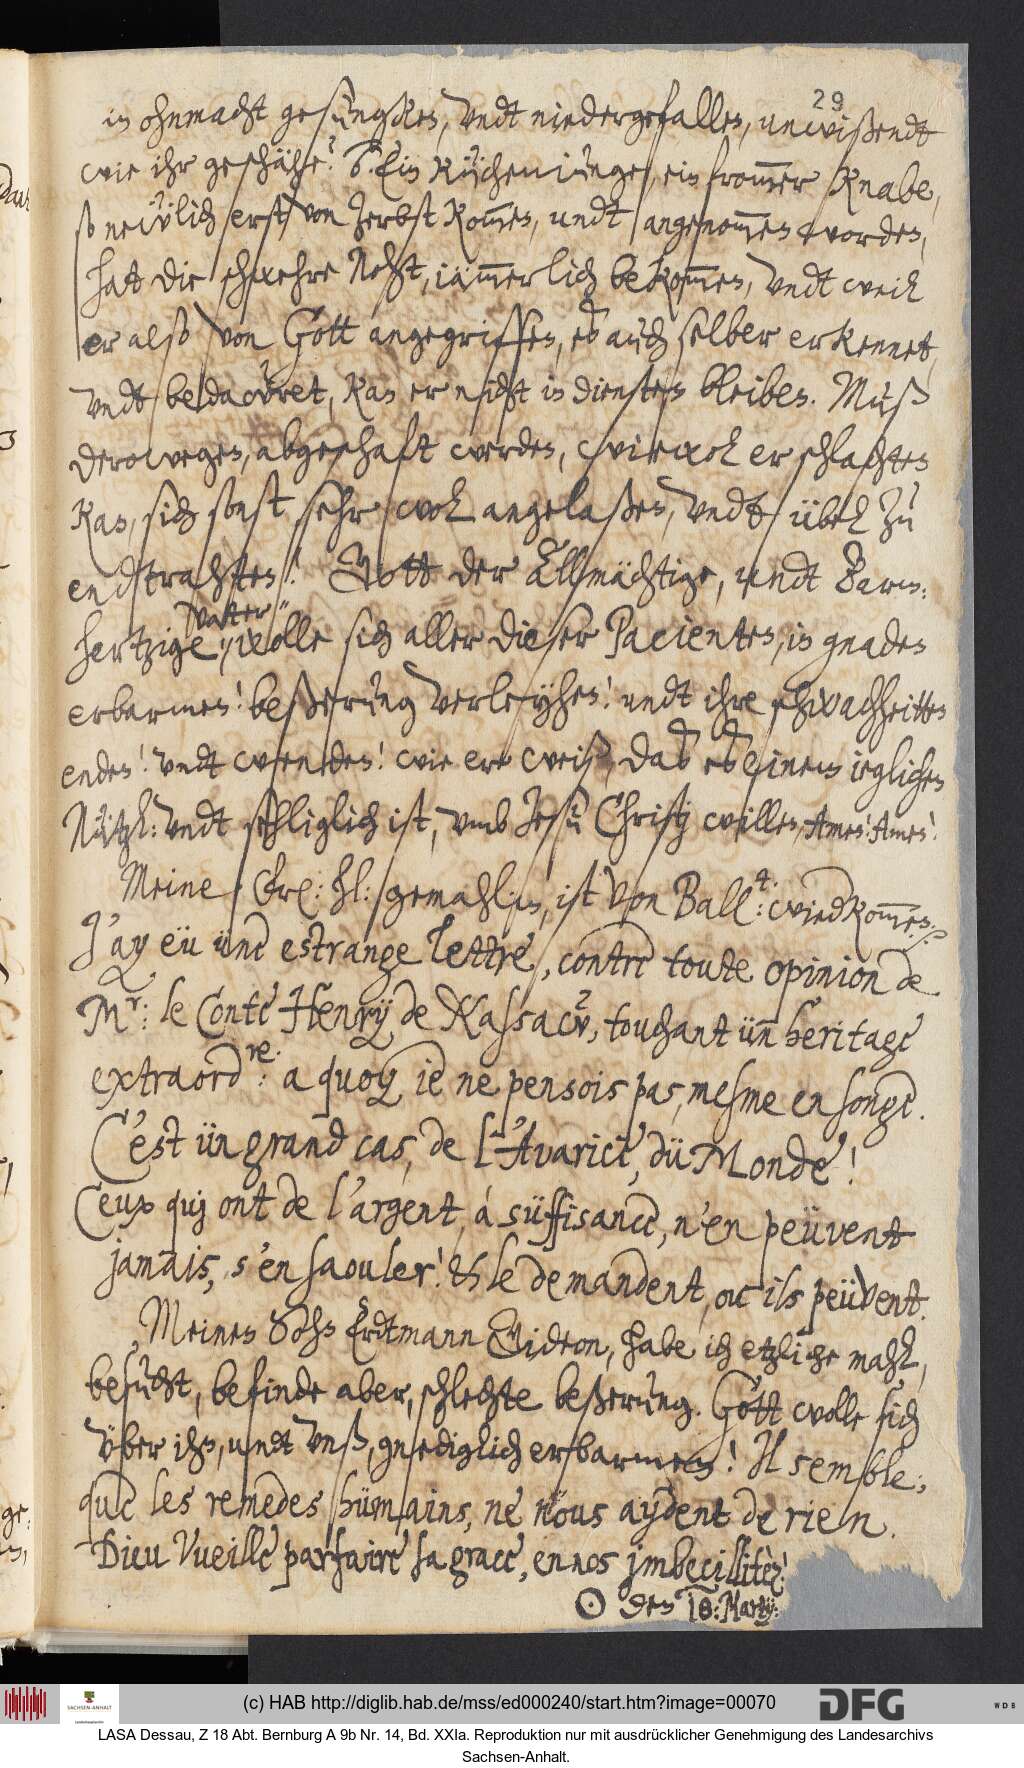 29
in ohnmacht gesuncken, undt niedergefallen, unwißendt
wie ihr geschähe? 6. Ein Küchenjunge, ein frommer Knabe,
ß neẅlich erst von Zerbst kom̅en, undt angenom̅en worden,
hat die schwehre Noht, jäm̅erlich bekom̅en, undt weil
er also von Gott angegriffen, es auch selber erkennet,
undt bedawret, kan er nicht in diensten bleiben. Muß
derowegen, abgeschaft werden, wiewol er schlachten
kan, sich sonst sehr wol angelaßen, undt übel zu
endtrahten! Gott der Allmächtige, undt Barm:
hertzige, Vatter wolle sich aller dieser Pacienten, in gnaden
erbarmen! beßerung verleyhen! undt ihre schwachheitten
enden! undt wenden! wie er weiß, das es einem ieglichen
Nützl: undt sehliglich ist, umb Jesu Christj willen, Amen! Amen!
Meine Frl: hl: gemahlin, ist von Ball:4. wiedkom̅en.
J'ay eü ünè estrange lettre, contre toute opinion de
Mr: le Conte Henrÿ de Nassaw, touchant ün heritage
extraordre: a quoy ie ne pensois pas, mesme en songe.
C'est ün grand cas, de l'Avarice, dü Monde!
Ceux quj ont de l'argent, á süffisance, n'en peüvent
jamais, s'en saouler! & le demandent, ou ils peüvent.
Meinen Sohn Erdtmann Gideon, habe ich etzliche mahl,
besucht, befinde aber, schlechte beßerung. Gott wolle sich
über ihn, undt unß, gnediglich erbarmen! Il semble,
que les remedes hümains, ne nous aydent de rien.
Dieu vueille parfaire sa grace, en nos jmbecillitèz!
☉ den 18: Martij:
(c) HAB http://diglib.hab.de/mss/ed000240/start.htm?image=00070
SACHSEN-ANHALT
DFG
WDB
LASA Dessau, Z 18 Abt. Bernburg A 9b Nr. 14, Bd. XXIa. Reproduktion nur mit ausdrücklicher Genehmigung des Landesarchivs
Sachsen-Anhalt.